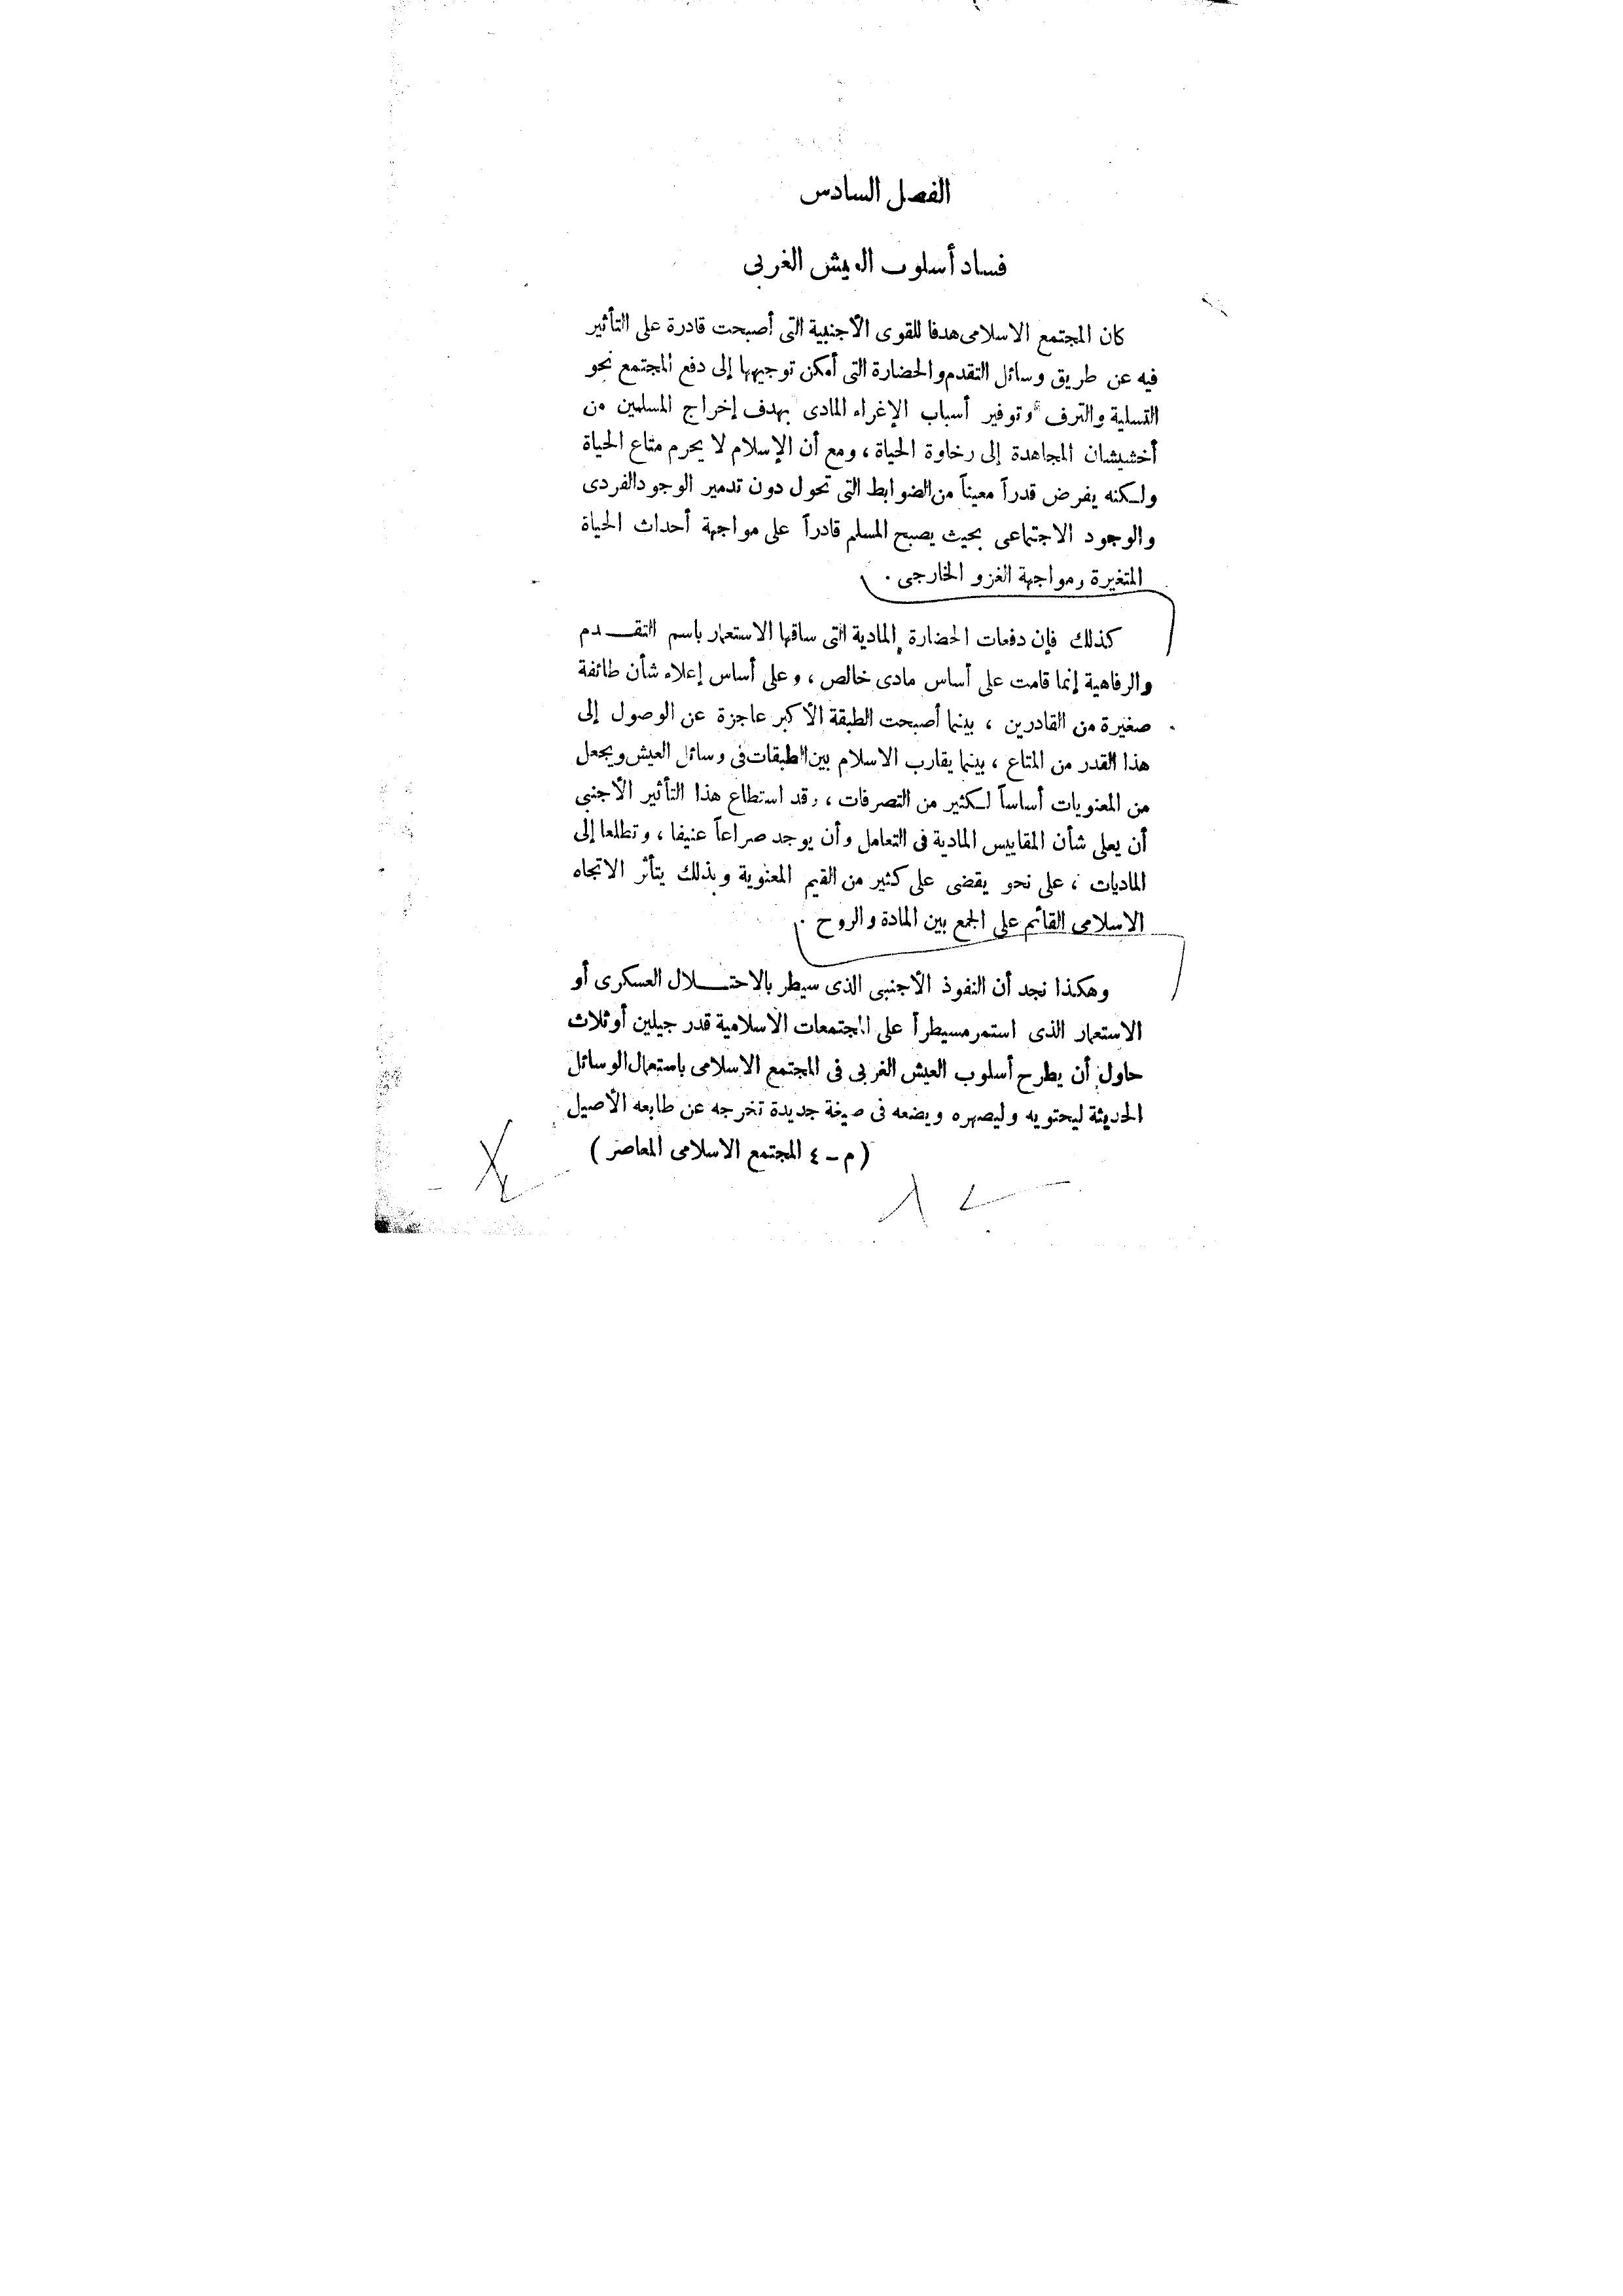 الفصل السادس
فساد أسلوب العيش الغربى
كان المجتمع الاسلامى هدفا للقوى الأجنبية التى أصبحت قادرة على التأثير
فيه عن طريق وسائل التقدم والحضارة التى أمكن توجيهها إلى دفع المجتمع نحو
التسلية والترف وتوفير أسباب الإغراء المادى بهدف إخراج المسلمين من
أخشيشان المجاهدة إلى رخاوة الحياة ، ومع أن الإسلام لا يحرم متاع الحياة
ولكنه يفرض قدراً معيناً من الضوابط التى تحول دون تدمير الوجود الفردى
والوجود الاجتماعى بحيث يصبح المسلم قادراً على مواجهة أحداث الحياة
المتغيرة ومواجهة الغزو الخارجى .
كذلك فإن دفعات الحضارة المادية التى ساقها الاستعمار باسم التقـــدم
والرفاهية إنما قامت على أساس مادى خالص ، وعلى أساس إعلاء شأن طائفة
صغيرة من القادرين ، بينما أصبحت الطبقة الأكبر عاجزة عن الوصول إلى
هذا القدر من المتاع ، بينما يقارب الاسلام بين الطبقات فى وسائل العيش ويجعل
من المعنويات أساساً لكثير من التصرفات ، وقد استطاع هذا التأثير الأجنبى
أن يعلى شأن المقاييس المادية فى التعامل وأن يوجد صراعاً عنيفا ، وتطلعا إلى
الماديات ، على نحو يقضى على كثير من القيم المعنوية وبذلك يتأثر الاتجاه
الاسلامى القائم على الجمع بين المادة والروح .
وهكذا نجد أن النفوذ الأجنبى الذى سيطر بالاحتـــلال العسكرى أو
الاستعمار الذى استمر مسيطراً على المجتمعات الاسلامية قدر جيلين أو ثلاث
حاول أن يطرح أسلوب العيش الغربى فى المجتمع الاسلامى باستعمال الوسائل
الحديثة ليحتويه وليصهره ويضعه فى صيغة جديدة تخرجه عن طابعه الأصيل
( م ــ ٤ المجتمع الاسلامى المعاصر )